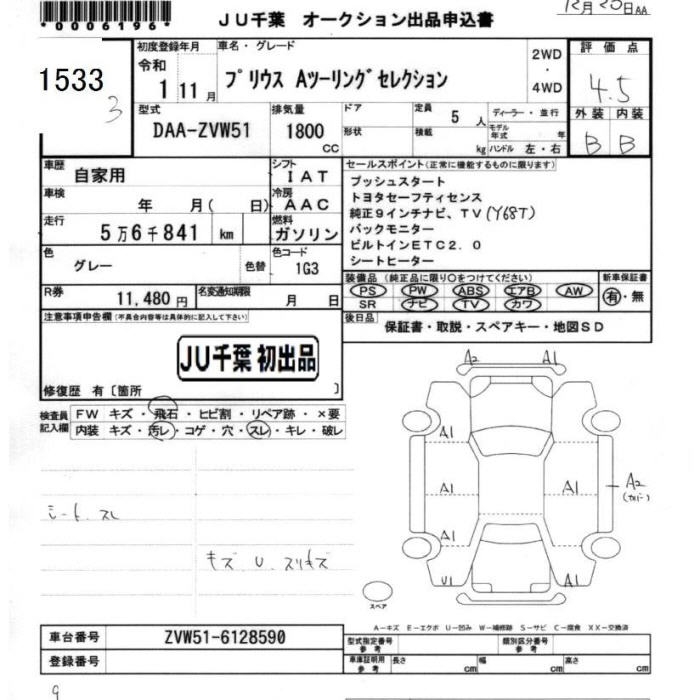 *0006196*
JU千葉 オークション出品申込書
12月25日AA
1533
3
初度登録年月
令和
1 11月
車名・グレード
プリウス Aツーリングセレクション
2WD
・
4WD
評価点
4.5
外装 内装
B B
型式
DAA-ZVW51
排気量
1800
CC
ドア
形状
定員
5人
積載
kg
ディーラー・並行
モデル年式 年
ハンドル 左・右
車歴
自家用
シフト
IAT
車検
年 月( 日)
冷房
AAC
走行
5万6千841 km
燃料
ガソリン
色
グレー
色替
色コード
1G3
R券
11,480円
名変通知期限
月 日
セールスポイント(正常に機能するものに限ります)
プッシュスタート
トヨタセーフティセンス
純正9インチナビ、TV(Y68T)
バックモニター
ビルトインETC2.0
シートヒーター
装備品(純正品に限り○をつけてください)
PS PW ABS エアB AW
SR ナビ TV カワ
新車保証書
有・無
後日品
保証書・取説・スペアキー・地図SD
注意事項申告欄(不具合内容等は具体的に記入して下さい)
JU千葉 初出品
修復歴 有[箇所 ]
検査員記入欄
FW キズ・飛石・ヒビ割・リペア跡・×要
内装 キズ・汚レ・コゲ・穴・スレ・キレ・破レ
シート、スレ
キズ U スリキズ
A2 A1
A1
A1 A1 A2
(カバー)
A1
U1 A1
スペア
A-キズ E-エクボ U-凹み W-補修跡 S-サビ C-腐食 XX-交換済
車台番号
ZVW51-6128590
登録番号
型式指定番号 参考
類別区分番号 参考
車庫証明用 参考
長さ cm 幅 cm 高さ cm
9